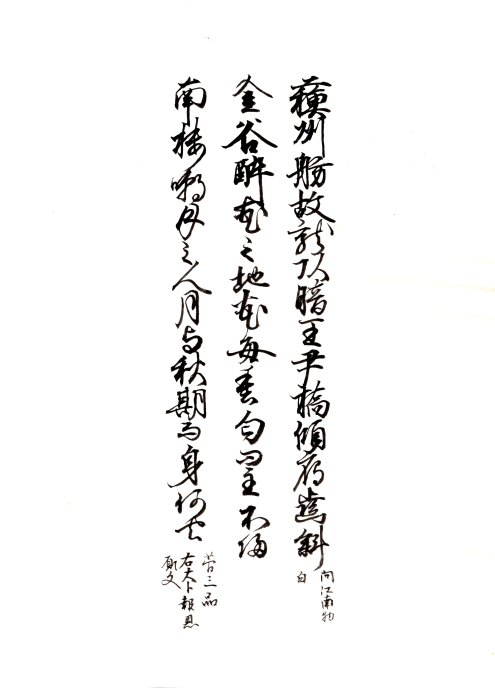 蘓州舫故龍頭暗王尹橋傾雁歯斜
問江南物
白
金谷酔花之地花毎春匂而主不帰
南楼嘲月之人月与秋期而身何去
菅三品
右大卜報恩
願文